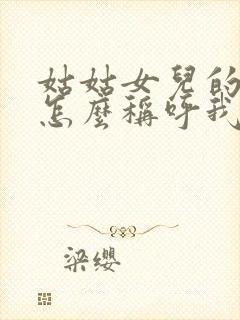 姑姑女兒的
怎麼稱呼我
梁纓